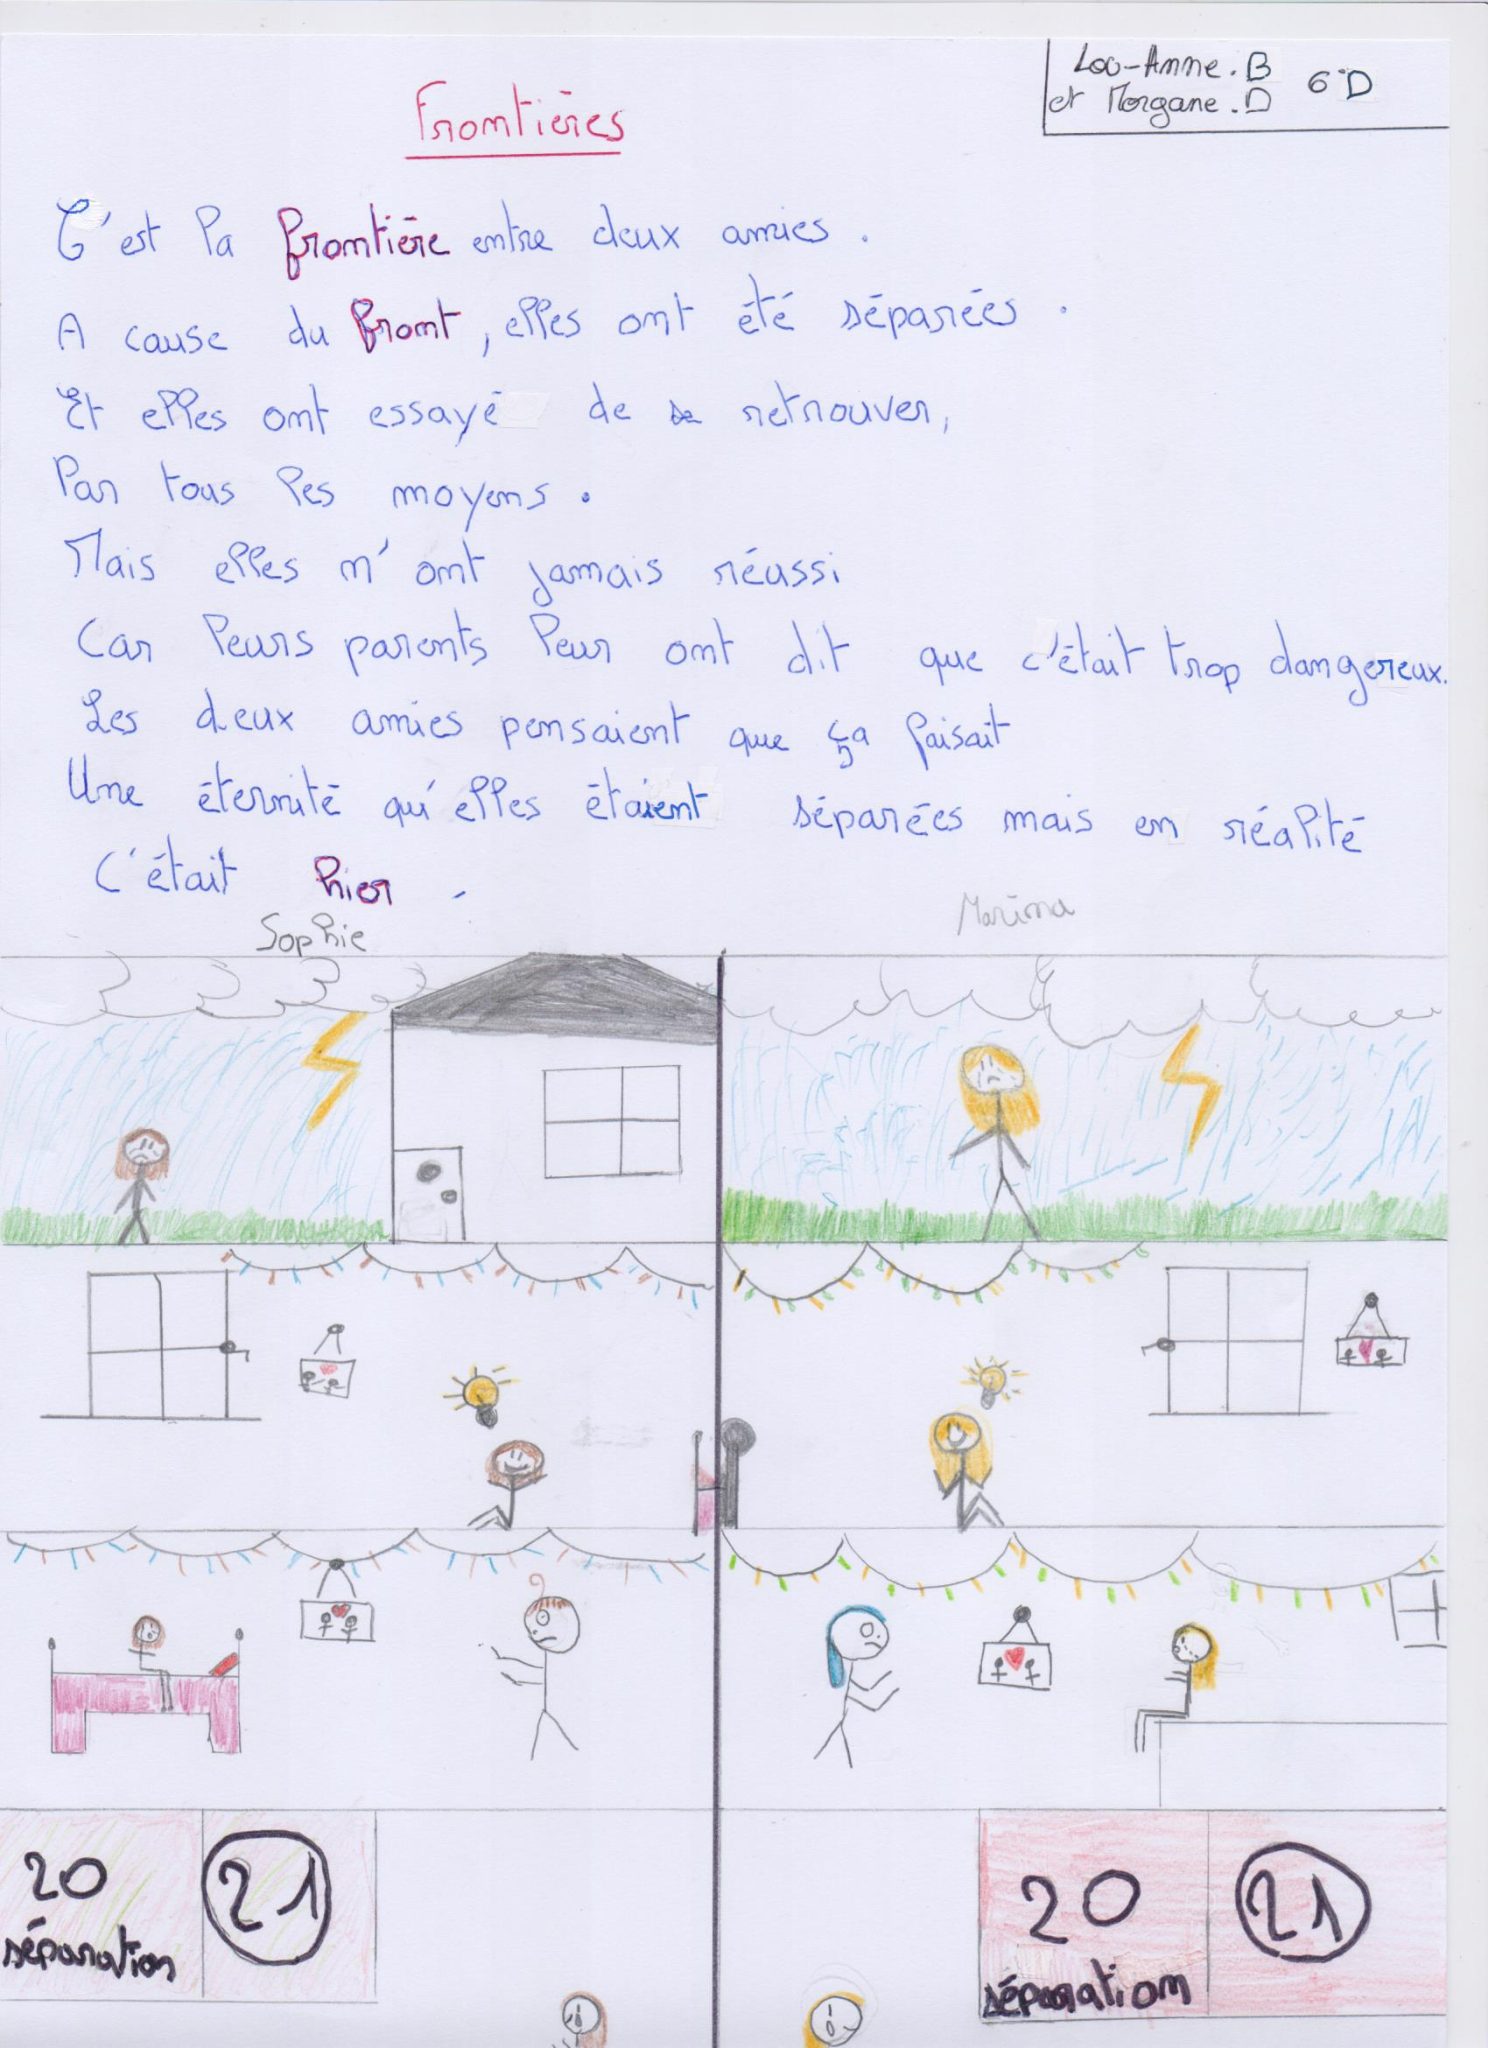 Lou-Anne.B
et Morgane.D
6°D
Frontières
C'est la frontière entre deux amies.
A cause du front, elles ont été séparées.
Et elles ont essayé de se retrouver,
Par tous les moyens.
Mais elles n'ont jamais réussi
Car leurs parents leur ont dit que c'était trop dangereux.
Les deux amies pensaient que ça faisait
Une éternité qu'elles étaient séparées mais en réalité
C'était hier.
Sophie
Marina
20
séparation
21
20
séparation
21